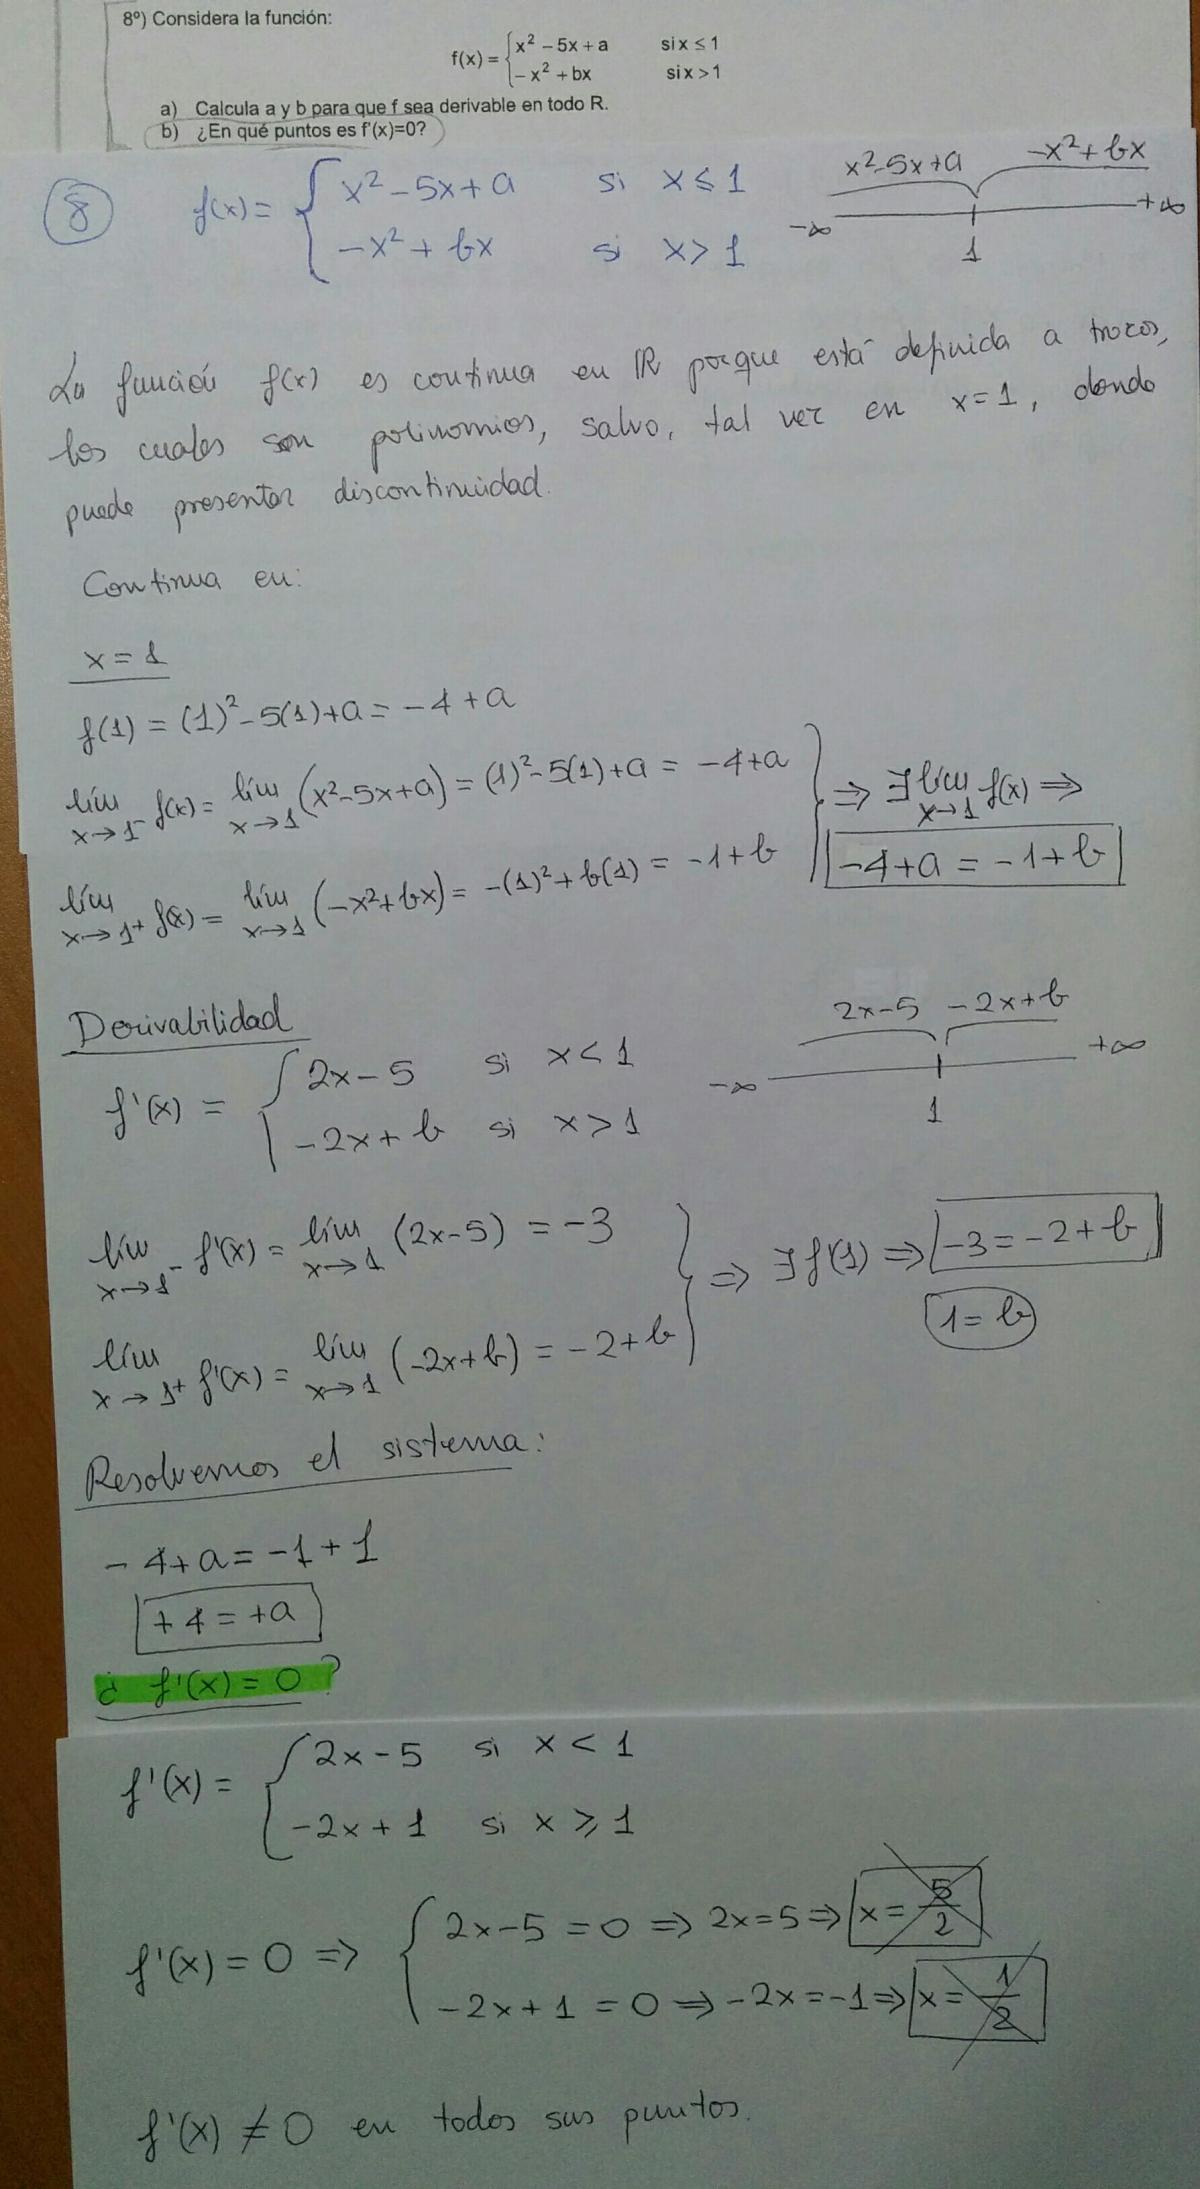 8º) Considera la función:
f(x) = { x² − 5x + a si x ≤ 1
− x² + bx si x > 1
a) Calcula a y b para que f sea derivable en todo R.
b) ¿En qué puntos es f'(x)=0?
x²-5x+a -x²+bx
-∞ 1 +∞
8 f(x) = { x² - 5x + a si x ≤ 1
-x² + bx si x > 1
La función f(x) es continua en IR porque está definida a trozos,
los cuales son polinomios, salvo, tal vez en x=1, donde
puede presentar discontinuidad.
Continua en:
x = 1
f(1) = (1)² - 5(1) + a = -4 + a
lím x→1⁻ f(x) = lím x→1 (x²-5x+a) = (1)²-5(1)+a = -4+a
lím x→1⁺ f(x) = lím x→1 (-x²+bx) = -(1)²+b(1) = -1+b
} ⇒ ∃ lím x→1 f(x) ⇒
-4+a = -1+b
Derivabilidad
f'(x) = { 2x - 5 si x < 1
-2x + b si x > 1
2x-5 -2x+b
-∞ 1 +∞
lím x→1⁻ f'(x) = lím x→1 (2x-5) = -3
lím x→1⁺ f'(x) = lím x→1 (-2x+b) = -2+b
} ⇒ ∃ f'(1) ⇒ -3 = -2 + b
1 = b
Resolvemos el sistema:
- 4+a = -1 + 1
+ 4 = +a
¿ f'(x) = 0 ?
f'(x) = { 2x - 5 si x < 1
-2x + 1 si x ≥ 1
f'(x) = 0 ⇒ { 2x-5 = 0 ⇒ 2x=5 ⇒ x = 5/2
-2x+1 = 0 ⇒ -2x = -1 ⇒ x = 1/2
f'(x) ≠ 0 en todos sus puntos.